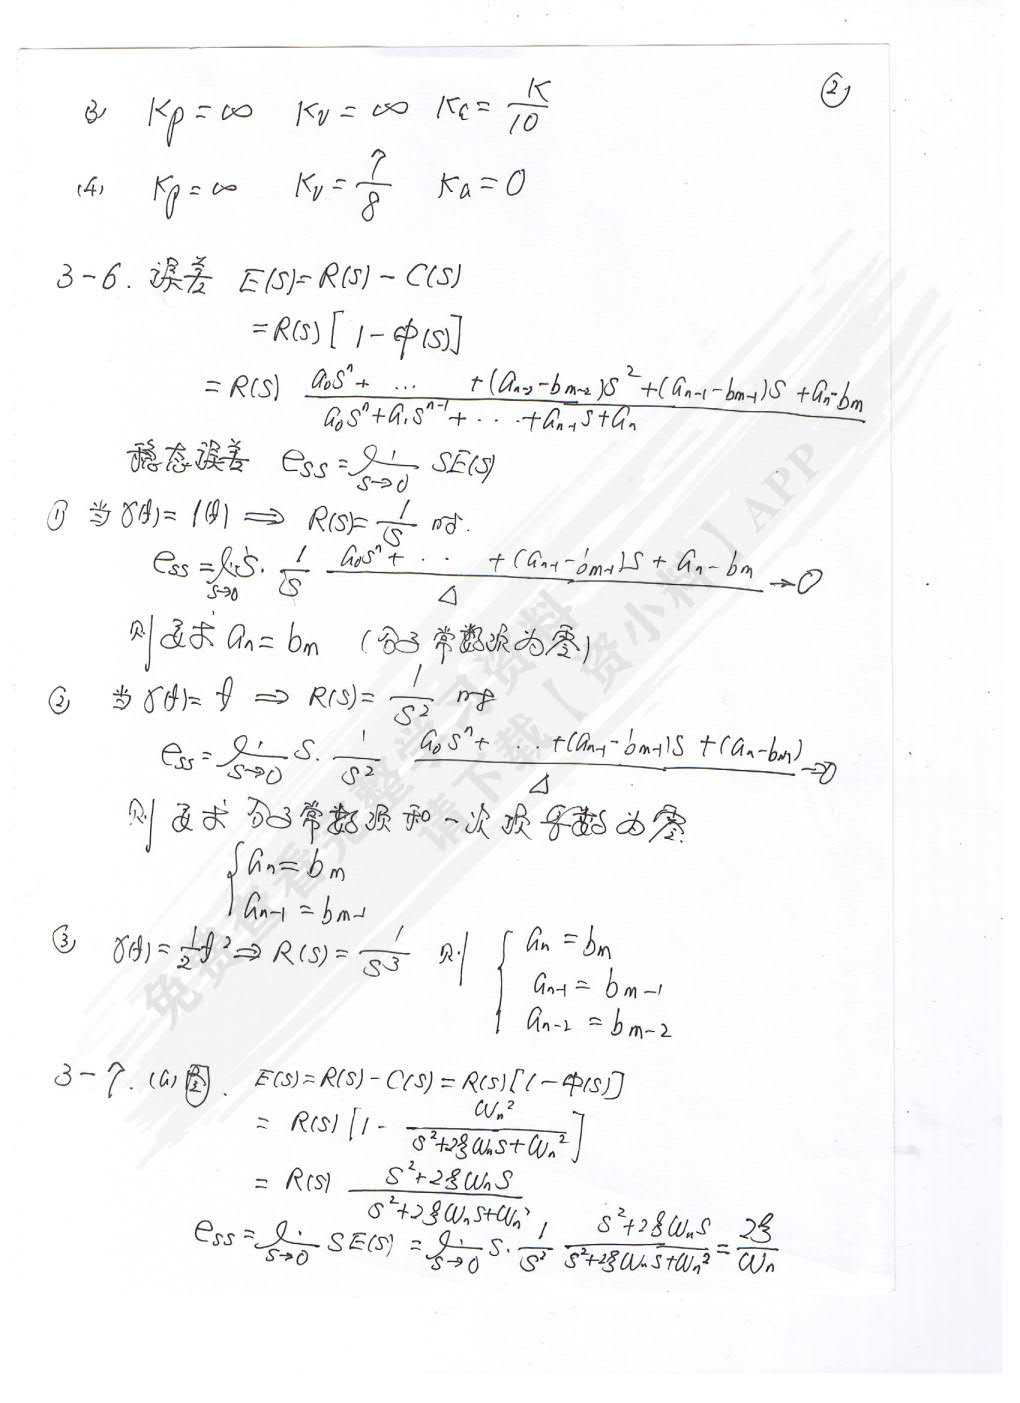 ②
(3) Kp = ∞ Kv = ∞ Ka = K/10
(4) Kp = ∞ Kv = 7/8 Ka = 0
3-6. 误差 E(s) = R(s) - C(s)
= R(s)[1 - Φ(s)]
= R(s) (a₀sⁿ + ... + (aₙ₋₂ - bₘ₋₂)s² + (aₙ₋₁ - bₘ₋₁)s + aₙ - bₘ)/(a₀sⁿ + a₁sⁿ⁻¹ + ... + aₙ₋₁s + aₙ)
稳态误差 ess = lim s→0 sE(s)
① 当 r(t) = 1(t) ⇒ R(s) = 1/s 时.
ess = lim s→0 s · 1/s (a₀sⁿ + ... + (aₙ₋₁ - bₘ₋₁)s + aₙ - bₘ)/Δ → 0
则要求 aₙ = bₘ (分子常数项为零)
② 当 r(t) = t ⇒ R(s) = 1/s² 时
ess = lim s→0 s · 1/s² (a₀sⁿ + ... + (aₙ₋₁ - bₘ₋₁)s + (aₙ - bₘ))/Δ → 0
则要求分子常数项和一次项系数为零.
{ aₙ = bₘ
aₙ₋₁ = bₘ₋₁
③ r(t) = 1/2 t² ⇒ R(s) = 1/s³ 则 { aₙ = bₘ
aₙ₋₁ = bₘ₋₁
aₙ₋₂ = bₘ₋₂
3-7. (a)图. E(s) = R(s) - C(s) = R(s)[1 - Φ(s)]
= R(s)[1 - ωₙ²/(s² + 2ξωₙs + ωₙ²)]
= R(s) (s² + 2ξωₙs)/(s² + 2ξωₙs + ωₙ²)
ess = lim s→0 sE(s) = lim s→0 s · 1/s² (s² + 2ξωₙs)/(s² + 2ξωₙs + ωₙ²) = 2ξ/ωₙ
免费查看完整学习资料
请下载【资小料】APP